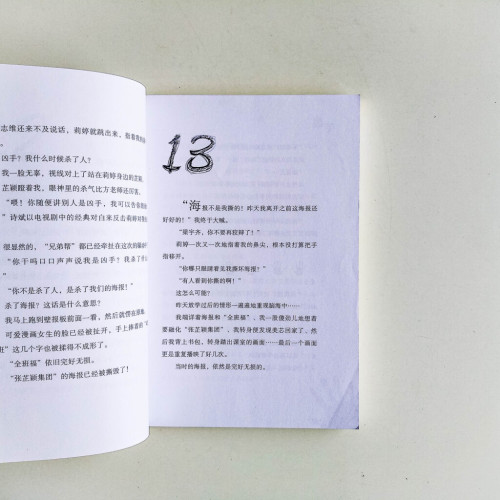 志维还来不及说话，莉婷就跳出来，指着我的
。
凶手？我什么时候杀了人？
我一脸无辜，视线对上了站在莉婷身边的芷
芷颖瞪着我，眼神里的杀气比方老师还厉害。
“喂！你随便讲别人是凶手，我可以告
”诗斌以电视剧中的经典对白来反击莉婷对
很显然的，“兄弟帮”都已经牵扯在这次的
“你干吗口口声声说我是凶手？我杀了
“你不是杀了人，是杀了我们的海报！”
杀了海报？这话是什么意思？
我马上跑到壁报板前面一看，然后就愣在原地
可爱漫画女生的脸已经被扯开，手上捧着的“
班”这几个字也被揉得不成形了。
“全班福”依旧完好无损。
“张芷颖集团”的海报已经被撕毁了！
18
“海报不是我撕的！昨天我离开之前这海报还
好好的！”我终于大喊。
“梁宇齐，你不要再狡辩了！”
莉婷一次又一次地指着我的鼻尖，根本没打算把手
指移开。
“你哪只眼睛看见我撕坏海报！”
“有人看到你撕的啊！”
这怎么可能？
昨天放学过后的情形一遍遍地重现脑海中……
我端详着海报和“全班福”，我一股傻劲儿地想着
要融化“张芷颖集团”，我转身便发现美志回家了，然
后我背上书包，转身踏出课室的画面……最后一个画面
更是重复播映了好几次。
当时的海报，依然是完好无损的。